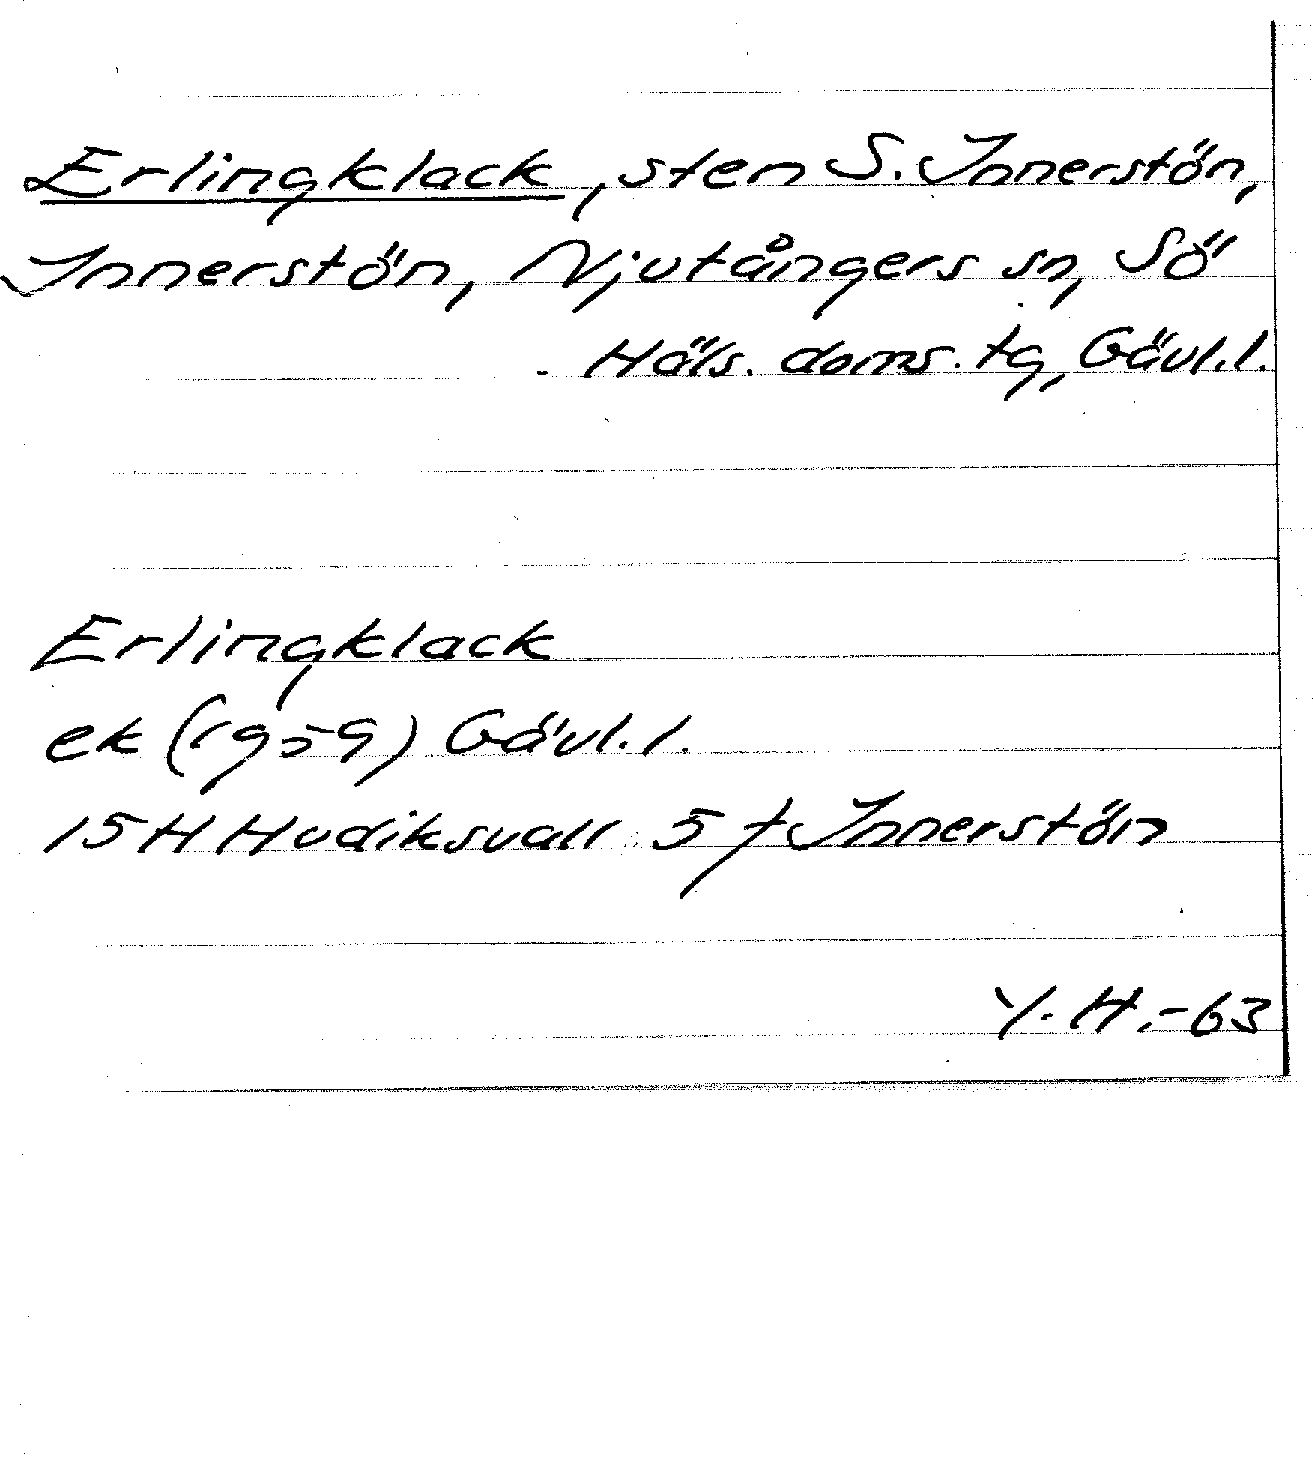 Erlingklack, sten S. Innerstön,
Innerstön, Njutångers sn, Sö
Häls. doms. tg, Gävl. l.
Erlingklack
ek (1959) Gävl. l.
15 H Hudiksvall 5 f Innerstön
Y. H. -63